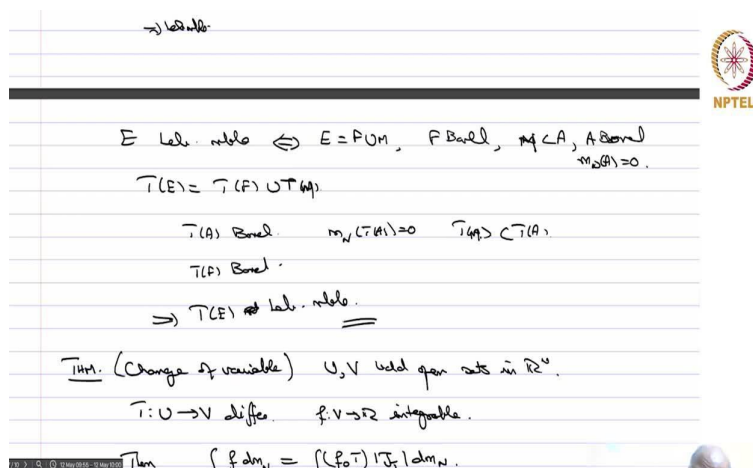 ⇒ Leb mble.
NPTEL
E Leb. mble ⇔ E = F ∪ M, F Borel, M ⊂ A, A Borel
m_N(A) = 0.
T(E) = T(F) ∪ T(M).
T(A) Borel. m_N(T(A)) = 0 T(M) ⊂ T(A).
T(F) Borel.
⇒ T(E) Leb. mble.
THM. (Change of variable) U, V bdd open sets in ℝ^N.
T: U → V diffeo. f: V → ℝ integrable.
Then ∫ f dm_N = ∫ (f∘T) |J_T| dm_N.
12 May 09:55 - 12 May 10:00